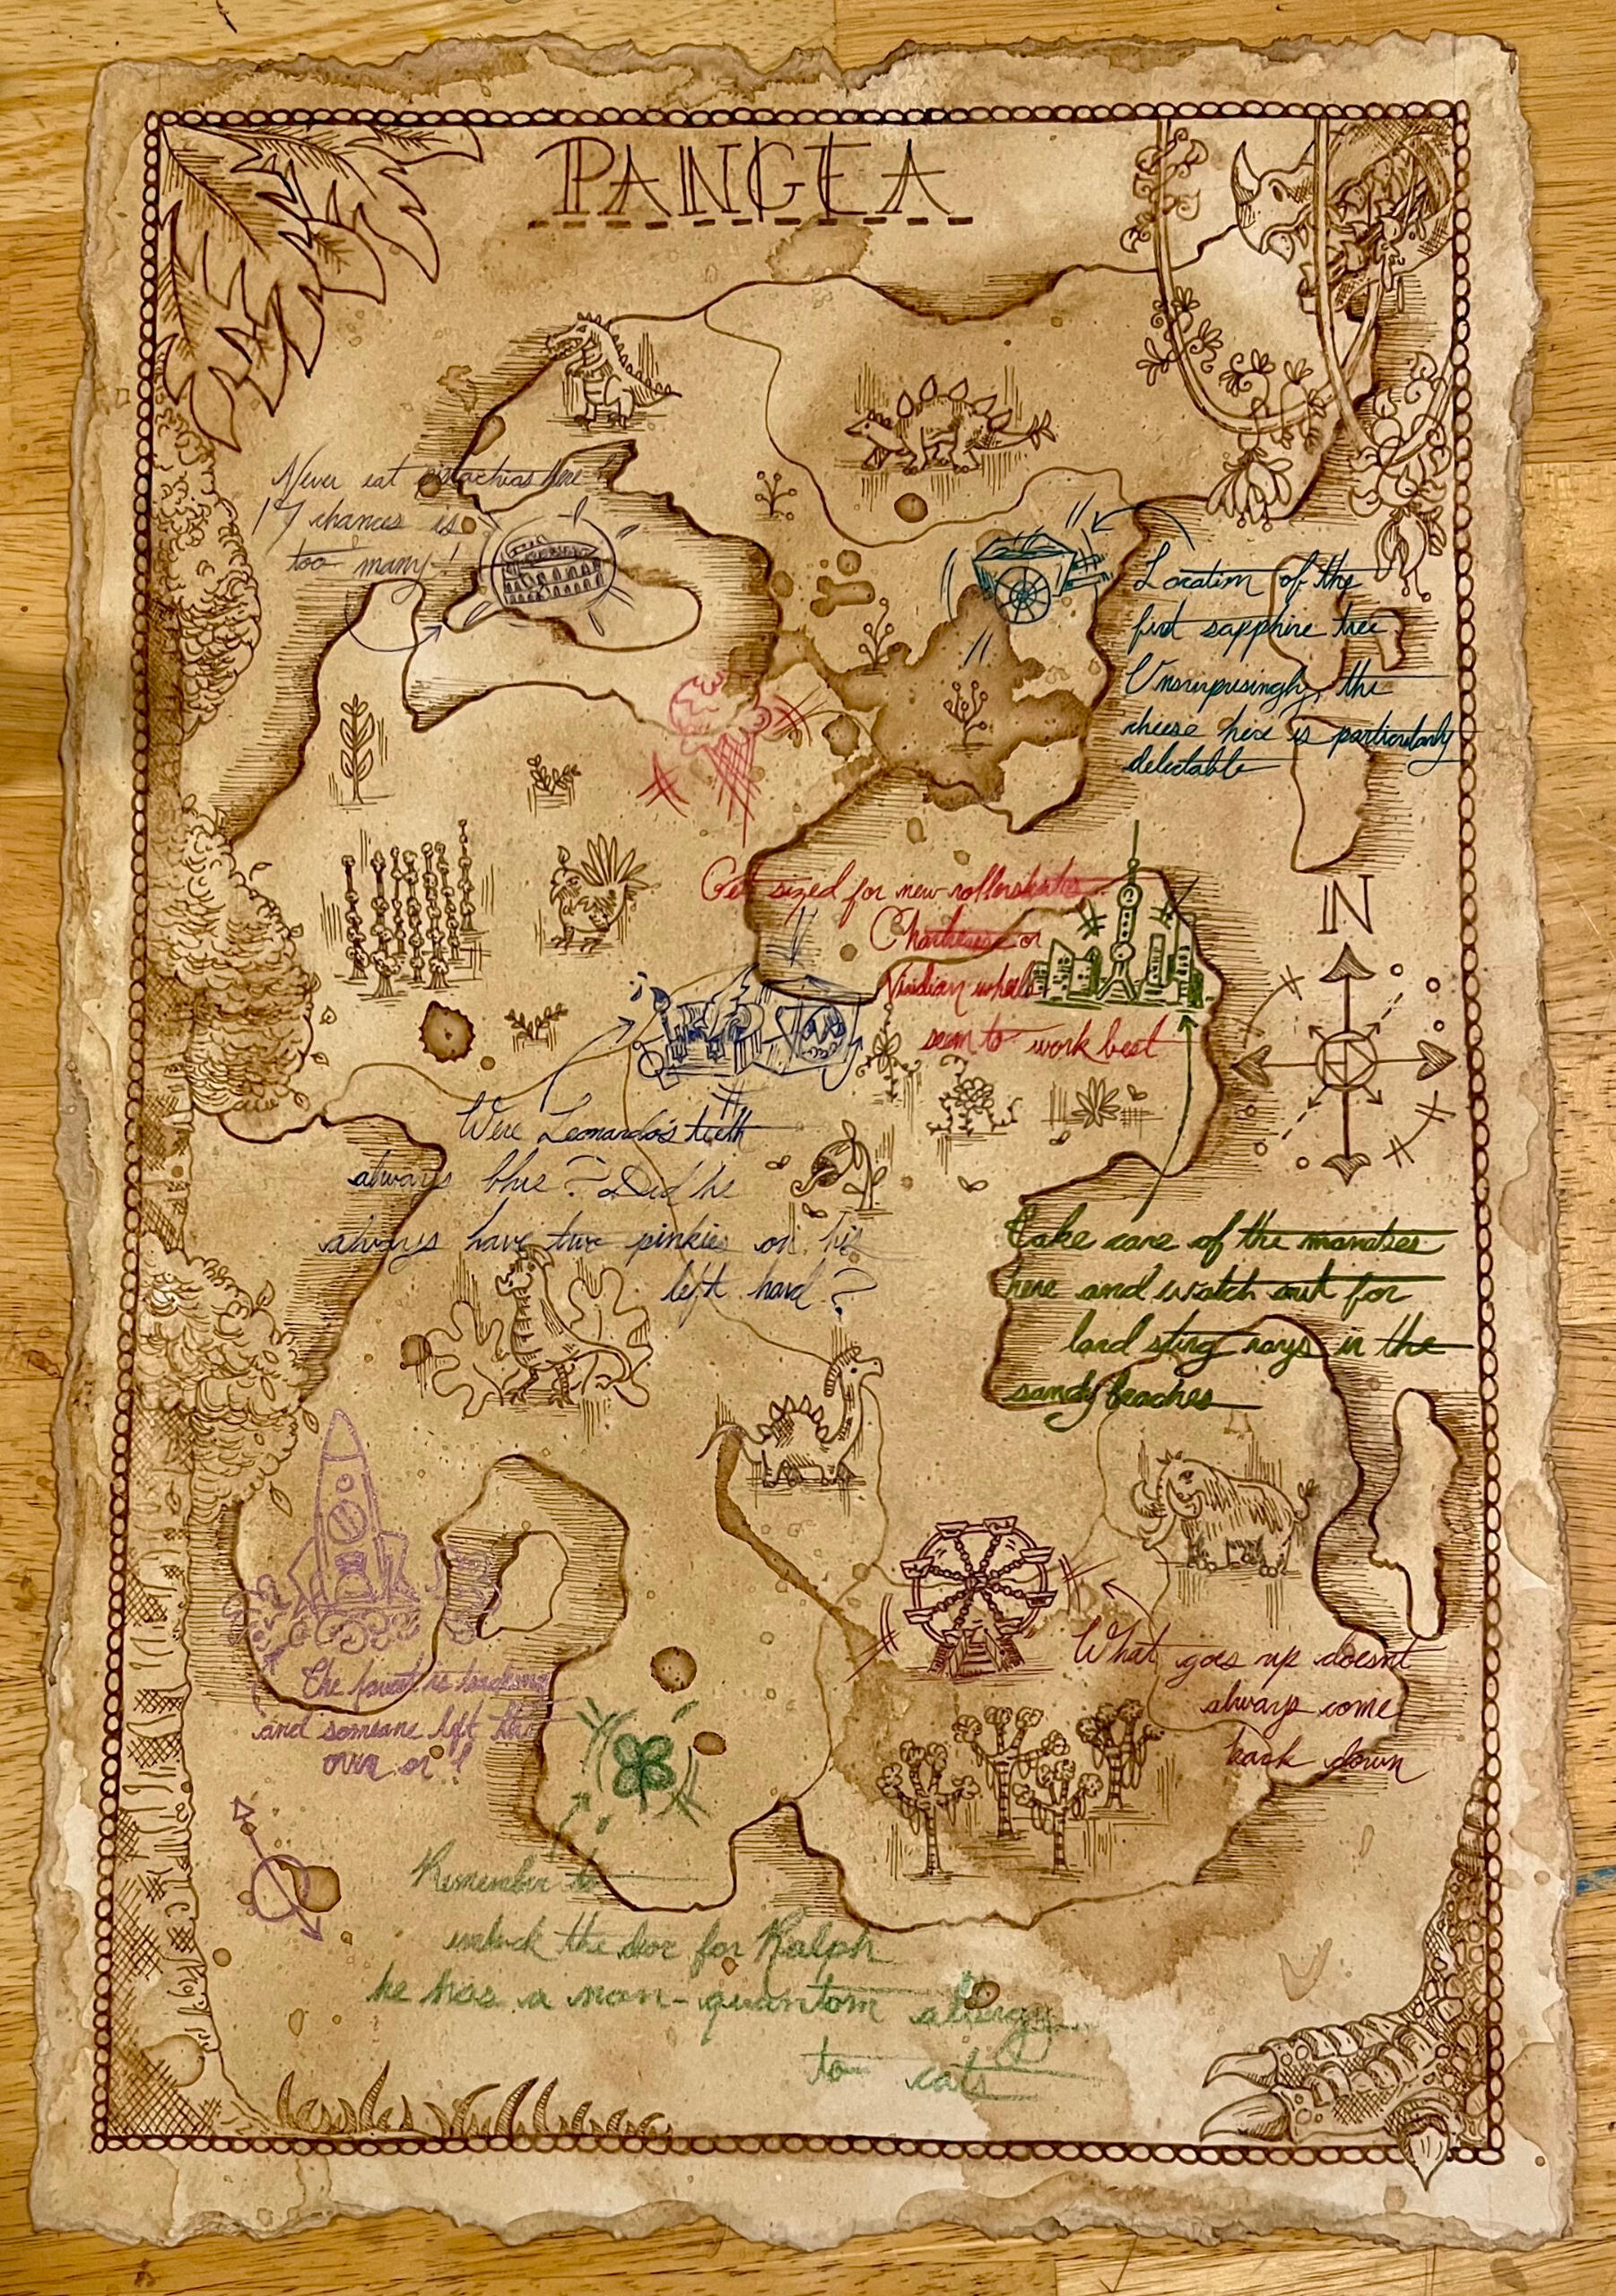 PANGEA
Never eat pistachios here!
17 chances is
too many!
Location of the
first sapphire tree
Unsurprisingly, the
cheese here is particularly
delectable
Get sized for new rollerskates
Chartreuse or
Viridian wheels
seem to work best
N
Were Leonardo's teeth
always blue? Did he
always have two pinkies on his
left hand?
Take care of the manatees
here and watch out for
land sting rays in the
sandy beaches
What goes up doesn't
always come
back down
The faucet is
and someone left the
oven on!
Remember to
unlock the door for Ralph
he has a non-quantom allergy
to cats